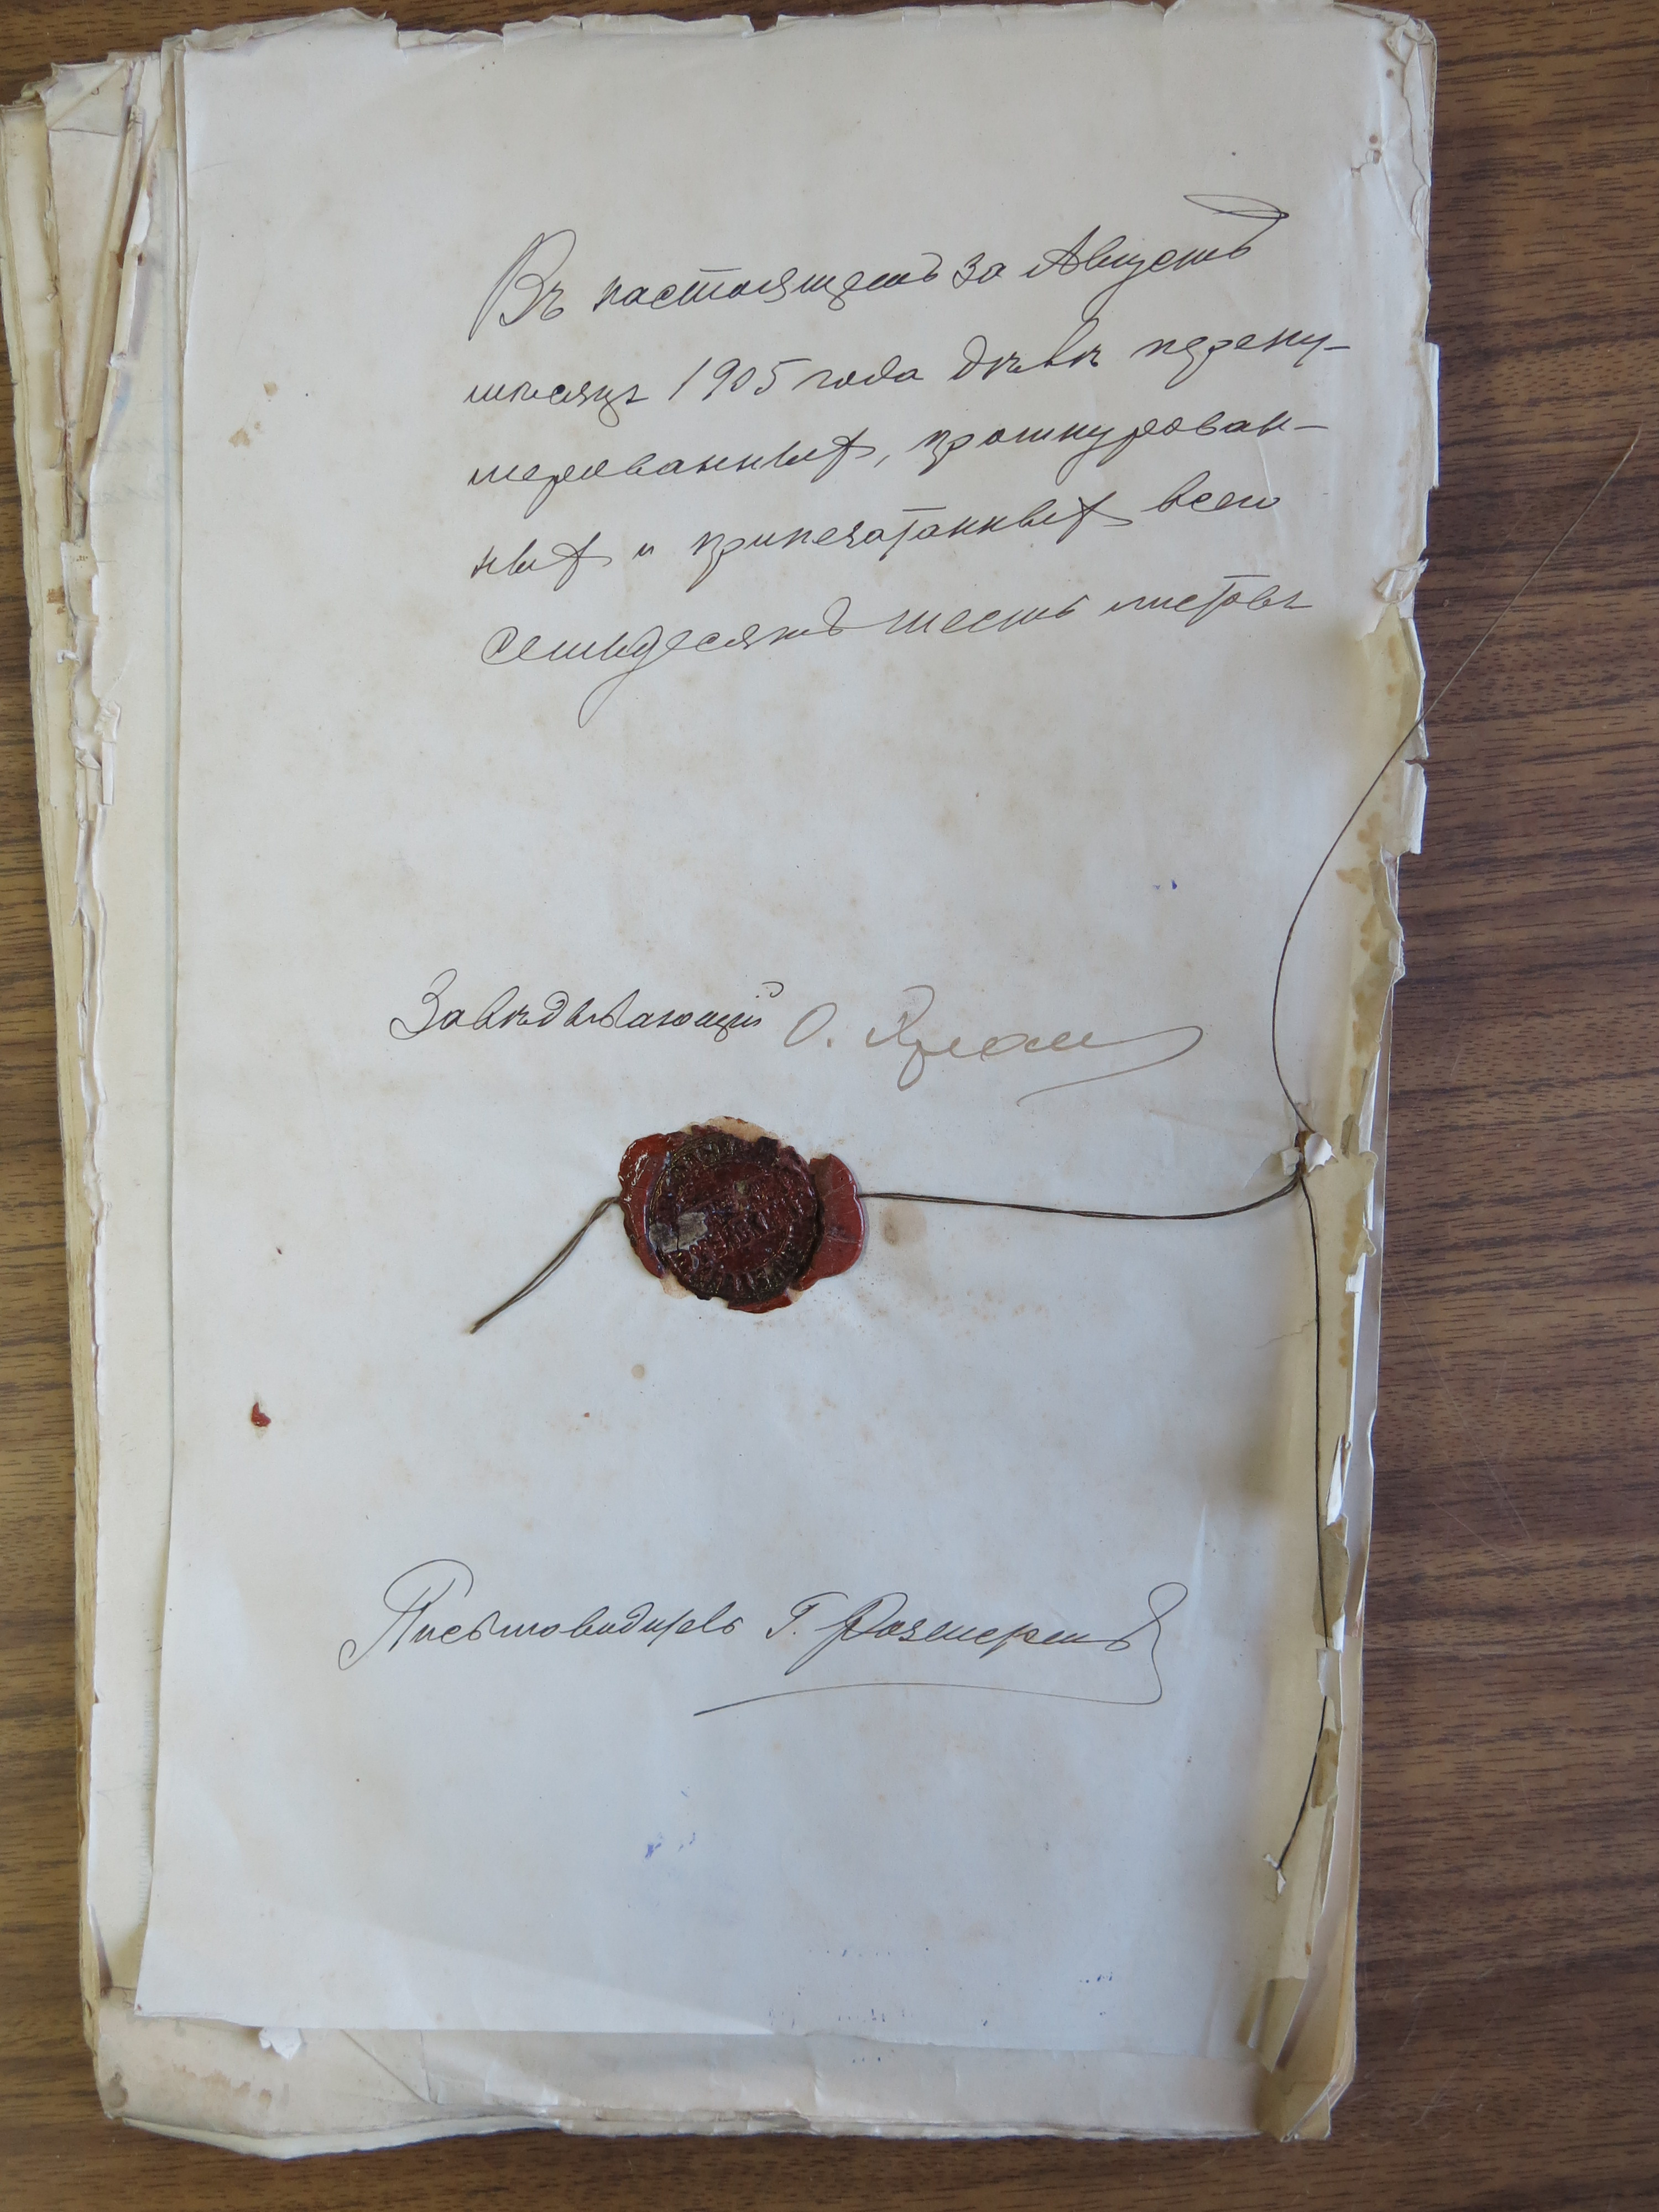 Въ настоящемъ за Августъ
мѣсяцъ 1905 года дѣлѣ перену-
мерованныхъ, прошнурован-
ныхъ и припечатанныхъ всего
семьдесятъ шесть листовъ
Завѣдывающій О.
Письмоводитель Г.